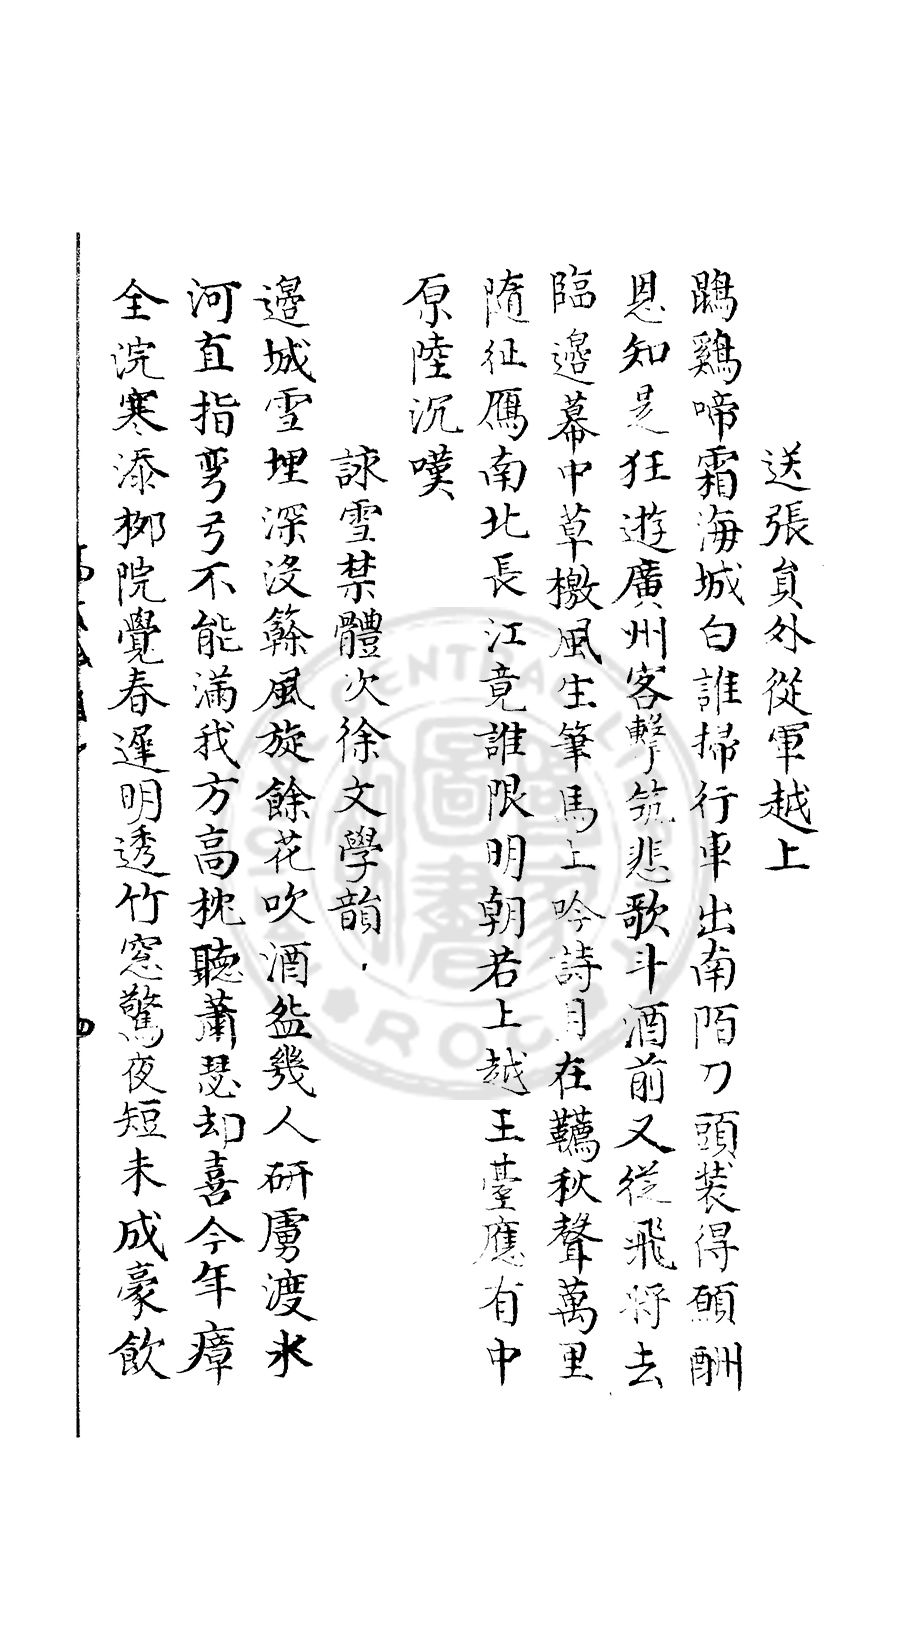 送張員外從軍越上
鵾鷄啼霜海城白誰掃行車出南陌刀頭装得願酬
恩知是狂遊廣州客擊筑悲歌斗酒前又從飛將去
臨邊幕中草檄風生筆馬上吟詩月在韉秋聲萬里
隨征鴈南北長江竟誰限明朝若上越王臺應有中
原陸沉嘆
詠雪禁體次徐文學韻
邉城雪埋深没䉒風旋餘花吹酒盆幾人研虜渡氷
河直指弯弓不能滿我方高枕聽蕭瑟却喜今年瘴
全浣寒添栁院覺春遲明透竹窓驚夜短未成豪飲
四